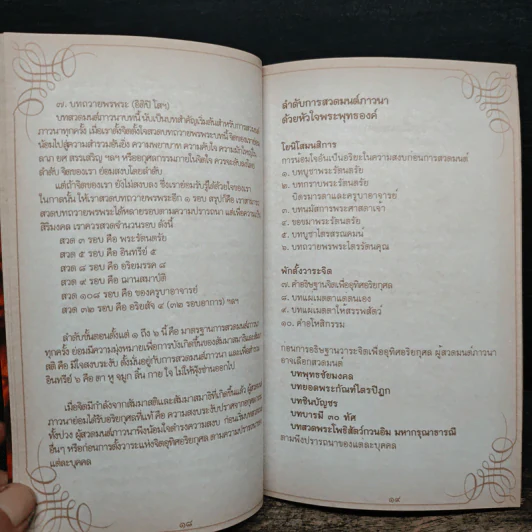 ๗. บทถวายพรพระ (อิติปิ โสฯ)
บทสวดมนต์ภาวนาบทนี้ นับเป็นบทสำคัญเริ่มต้นสำหรับการสวดมนต์
ภาวนาทุกครั้ง เมื่อเราตั้งจิตตั้งใจสวดบทถวายพรพระบทนี้ จิตของเราย่อม
น้อมไปสู่ความสำรวมอินทรีย์ ความพยาบาท ความคับใจ
ลาภ ยศ สรรเสริญ ฯลฯ หรืออกุศลธรรมภายในจิตใจ ควรระงับ
ลำดับ จิตของเรา ย่อมสงบโดยลำดับ
แต่ถ้าจิตของเรา ยังไม่สงบลง ซึ่งเราย่อมรับรู้ได้ด้วยใจของเรา
ในกาลนั้น ให้เราสวดบทถวายพรพระอีก ๑ รอบ สรุปก็คือ เราสามารถ
สวดบทถวายพรพระได้หลายรอบตามความปรารถนา แต่เพื่อความเป็น
สิริมงคล เราควรสวดจำนวนรอบ ดังนี้
สวด ๓ รอบ คือ พระรัตนตรัย
สวด ๕ รอบ คือ อินทรีย์ ๕
สวด ๘ รอบ คือ อริยมรรค ๘
สวด ๙ รอบ คือ ฌานสมาบัติ
สวด ๑๐๘ รอบ คือ ของครูบาอาจารย์
สวด ๓๒ รอบ คือ อริยสัจ ๔ (๓๒ รอบอาการ) ฯลฯ
ลำดับขั้นตอนตั้งแต่ ๑ ถึง ๖ นี้ คือ มาตรฐานการสวดมนต์ภาวนา
ทุกครั้ง ย่อมมีความมุ่งหมายเพื่อการบังเกิดขึ้นของสัมมาสติและสัมมา
สติ คือ มีใจสงบระงับ ตั้งมั่นอยู่กับการสวดมนต์ภาวนา และเพื่อสำรวม
อินทรีย์ ๖ คือ ตา หู จมูก ลิ้น กาย ใจ ไม่ให้ฟุ้งซ่านออกไป
เมื่อจิตมีกำลังจากสัมมาสติและสัมมาสมาธิที่เกิดขึ้นแล้ว ผู้สวดมนต์
ภาวนาย่อมได้รับอริยกุศลที่แท้ คือ ความสงบระงับปราศจาก
ทั้งปวง ผู้สวดมนต์ภาวนาพึงน้อมใจดำรงความสงบ ก่อนเริ่มบทสวด
อื่นๆ หรือก่อนการตั้งวาระแห่งจิตอุทิศอริยกุศล ตามความปรารถนาของ
แต่ละบุคคล
๑๘
ลำดับการสวดมนต์ภาวนา
ด้วยหัวใจพระพุทธองค์
โยนิโสมนสิการ
การน้อมใจอันเป็นอริยะในความสงบก่อนการสวดมนต์
๑. บทบูชาพระรัตนตรัย
๒. บทกราบพระรัตนตรัย
บิดรมารดาและครูบาอาจารย์
๓. บทนมัสการพระศาสดาเจ้า
๔. ขอขมาพระรัตนตรัย
๕. บทบูชาไตรสรณคมน์
๖. บทถวายพรพระไตรรัตนคุณ
พักตั้งวาระจิต
๗. คำอธิษฐานจิตเพื่ออุทิศอริยกุศล
๘. บทแผ่เมตตาแด่ตนเอง
๙. บทแผ่เมตตาให้สรรพสัตว์
๑๐. คำอโหสิกรรม
ก่อนการอธิษฐานวาระจิตเพื่ออุทิศอริยกุศล ผู้สวดมนต์ภาวนา
อาจเลือกสวดมนต์
บทพุทธชัยมงคล
บทยอดพระกัณฑ์ไตรปิฎก
บทชินบัญชร
บทบารมี ๓๐ ทัศ
บทสวดพระโพธิสัตว์กวนอิม มหากรุณาธารณี
ตามพึงปรารถนาของแต่ละบุคคล
๑๙